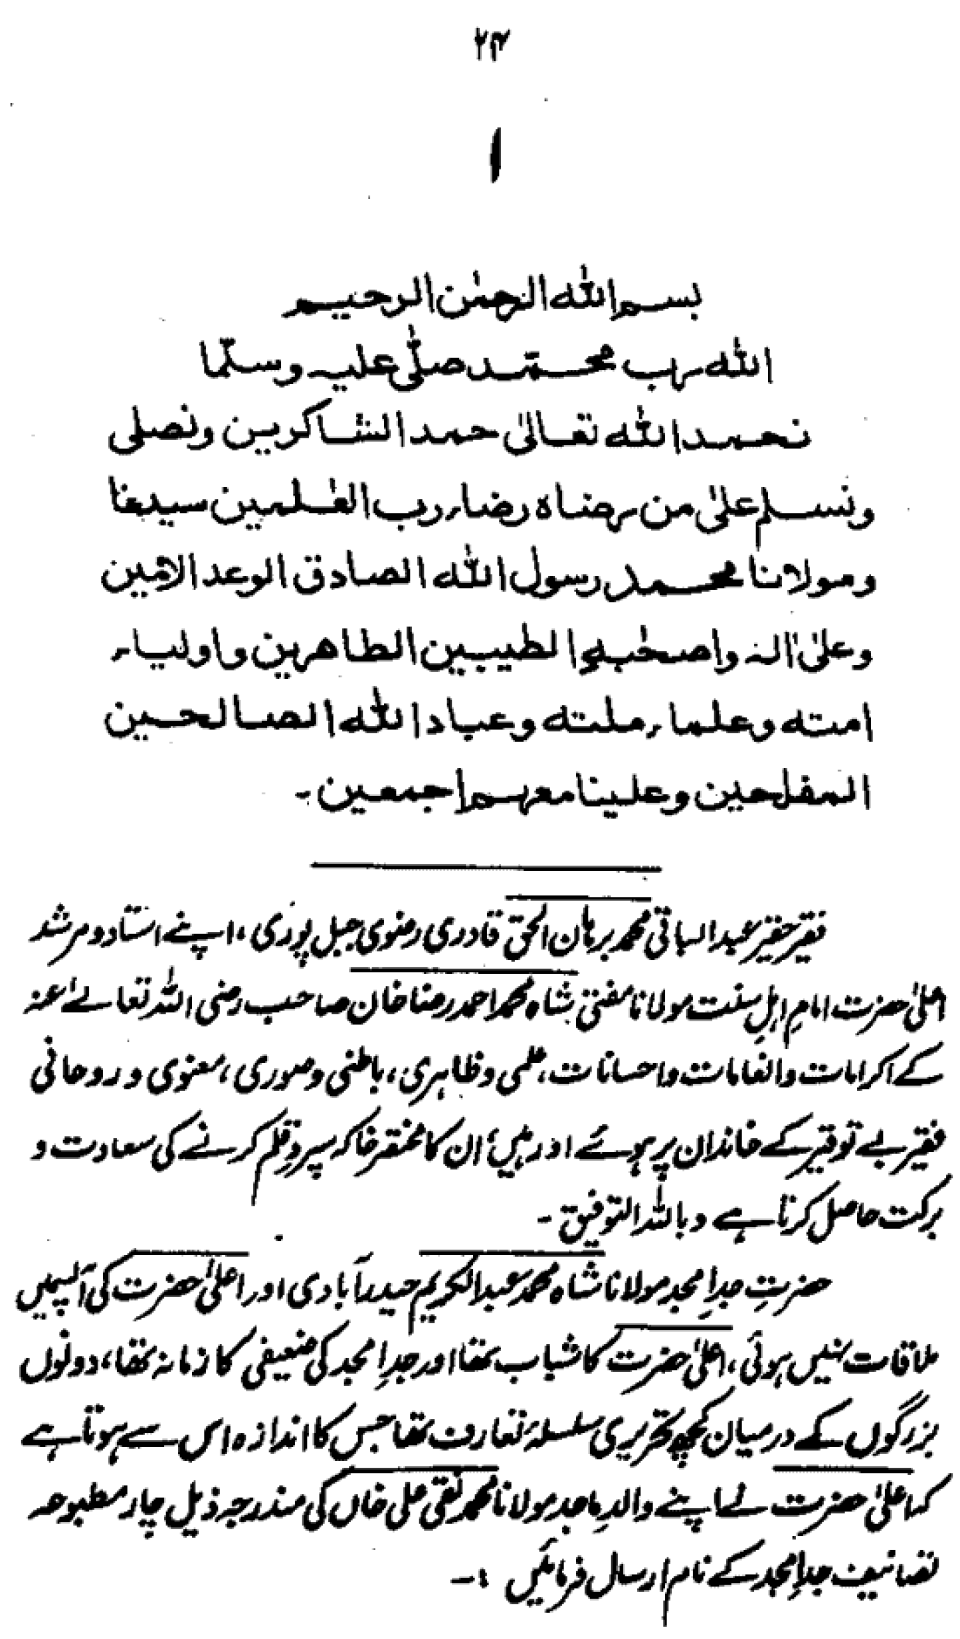 ۲۴
۱
بسم اللہ الرحمٰن الرحیم
اللہ رب محمّد صلّٰی علیہ وسلّما
نحمد اللہ تعالیٰ حمد الشاکرین ونصلی
ونسلم علیٰ من رضاہ رضاء رب العٰلمین سیدنا
ومولانا محمد رسول اللہ الصادق الوعد الامین
وعلیٰ اٰلہ واصحٰبہ الطیبین الطاھرین واولیاء
امتہ وعلماء ملتہ وعباد اللہ الصالحین
المفلحین وعلینا معہم اجمعین۔
فقیر حقیر عبدالباقی محمد برہان الحق قادری رضوی جبل پوری، اپنے استاد و مرشد
اعلیٰ حضرت امامِ اہلِ سنت مولانا مفتی شاہ محمد احمد رضا خان صاحب رضی اللہ تعالےٰ عنہ
کے اکرامات وانعامات واحسانات، علمی وظاہری، باطنی وصوری، معنوی و روحانی
فقیر بے توقیر کے خاندان پر ہوئے اور ہیں، ان کا مختصر خاکہ سپردِ قلم کرنے کی سعادت و
برکت حاصل کرتا ہے وباللہ التوفیق۔
حضرتِ جدِ امجد مولانا شاہ محمد عبدالکریم حیدرآبادی اور اعلیٰ حضرت کی آپسمیں
ملاقات نہیں ہوئی، اعلیٰ حضرت کا شباب تھا اور جدِ امجد کی ضعیفی کا زمانہ تھا، دونوں
بزرگوں کے درمیان کچھ تحریری سلسلۂ تعارف تھا جس کا اندازہ اس سے ہوتا ہے
کہ اعلیٰ حضرت نے اپنے والدِ ماجد مولانا محمد نقی علی خاں کی مندرجہ ذیل چار مطبوعہ
تصانیف جدِ امجد کے نام ارسال فرمائیں :۔